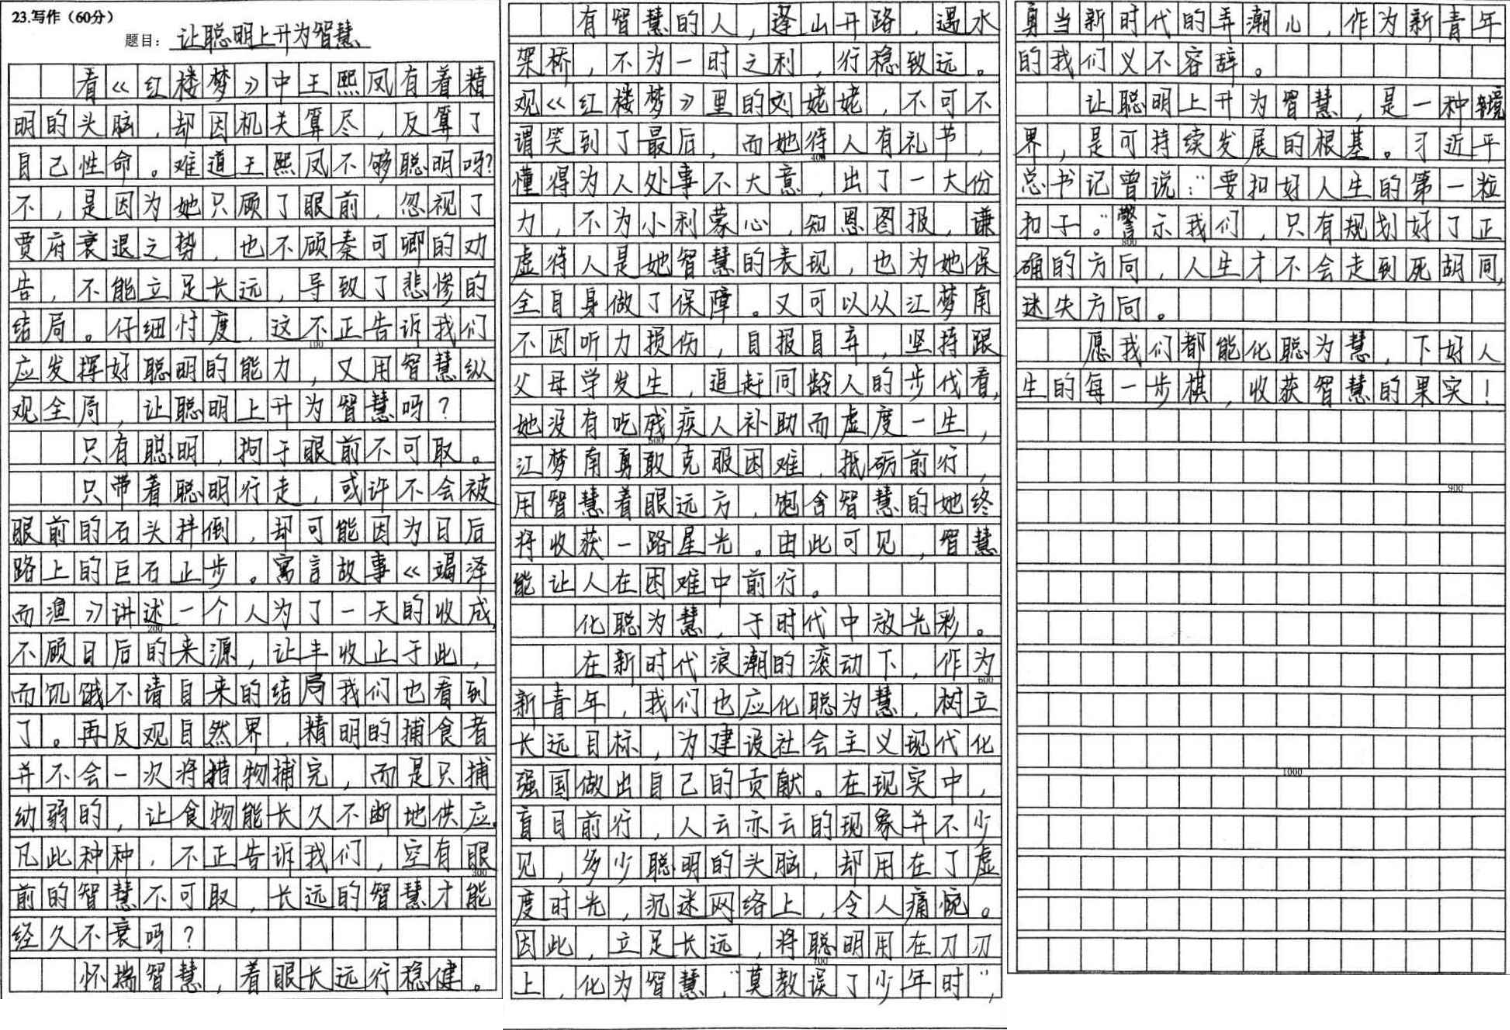 23.写作（60分）
题目：让聪明上升为智慧
看《红楼梦》中王熙凤有着精
明的头脑，却因机关算尽，反算了
自己性命。难道王熙凤不够聪明吗?
不，是因为她只顾了眼前，忽视了
贾府衰退之势，也不顾秦可卿的劝
告，不能立足长远，导致了悲惨的
结局。仔细忖度，这不正告诉我们
100
应发挥好聪明的能力，又用智慧纵
观全局，让聪明上升为智慧吗？
只有聪明，拘于眼前不可取。
只带着聪明行走，或许不会被
眼前的石头拌倒，却可能因为日后
路上的巨石止步。寓言故事《竭泽
而渔》讲述一个人为了一天的收成,
200
不顾日后的来源，让丰收止于此，
而饥饿不请自来的结局我们也看到
了。再反观自然界，精明的捕食者
并不会一次将猎物捕完，而是只捕
幼弱的，让食物能长久不断地供应。
凡此种种，不正告诉我们，空有眼
300
前的智慧不可取，长远的智慧才能
经久不衰吗？
怀揣智慧，着眼长远行稳健。
有智慧的人，逢山开路，遇水
架桥，不为一时之利，行稳致远。
观《红楼梦》里的刘姥姥，不可不
谓笑到了最后，而她待人有礼节，
400
懂得为人处事不大意，出了一大份
力，不为小利蒙心，知恩图报，谦
虚待人是她智慧的表现，也为她保
全自身做了保障。又可以从江梦南
不因听力损伤，自报自弃，坚持跟
父母学发生，追赶同龄人的步伐看,
她没有吃残疾人补助而虚度一生，
500
江梦南勇敢克服困难，抵砺前行，
用智慧着眼远方，饱含智慧的她终
将收获一路星光。由此可见，智慧
能让人在困难中前行。
化聪为慧，于时代中放光彩。
在新时代浪潮的滚动下，作为
600
新青年，我们也应化聪为慧，树立
长远目标，为建设社会主义现代化
强国做出自己的贡献。在现实中，
盲目前行，人云亦云的现象并不少
见，多少聪明的头脑，却用在了虚
度时光，沉迷网络上，令人痛惋。
因此，立足长远，将聪明用在刀刃
700
上，化为智慧，“莫教误了少年时”，
勇当新时代的弄潮儿，作为新青年
的我们义不容辞。
让聪明上升为智慧，是一种境
界，是可持续发展的根基。习近平
总书记曾说：“要扣好人生的第一粒
扣子。”警示我们，只有规划好了正
800
确的方向，人生才不会走到死胡同,
迷失方向。
愿我们都能化聪为慧，下好人
生的每一步棋，收获智慧的果实！
900
1000